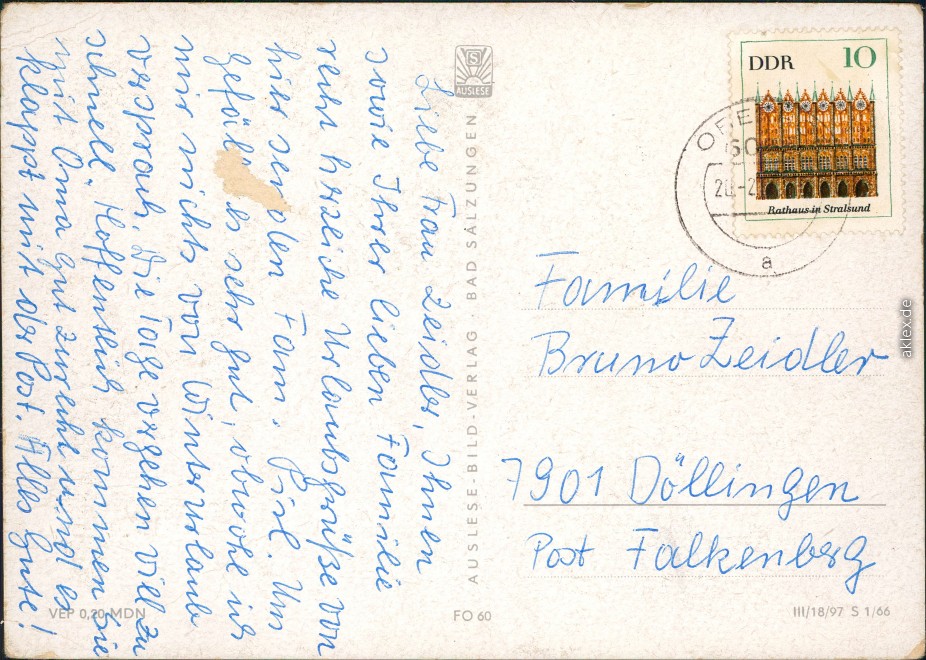 Liebe Frau Zeidler, Ihnen
sowie Ihrer lieben Familie
recht herzliche Urlaubsgrüße von
hier senden Fam. Pisl. Uns
gefäll es sehr gut, obwohl ich
mir nichts vom Winterurlaub
versprach. Die Tage vergehen viel zu
schnell. Hoffentlich kommen Sie
mit Oma gut zurecht und es
klappt mit der Post. Alles Gute!
AUSLESE
AUSLESE-BILD-VERLAG BAD SALZUNGEN
DDR 10
Rathaus in Stralsund
a
Familie
Bruno Zeidler
7901 Döllingen
Post Falkenberg
VEP 0,20 MDN
FO 60
III/18/97 S 1/66
aklex.de